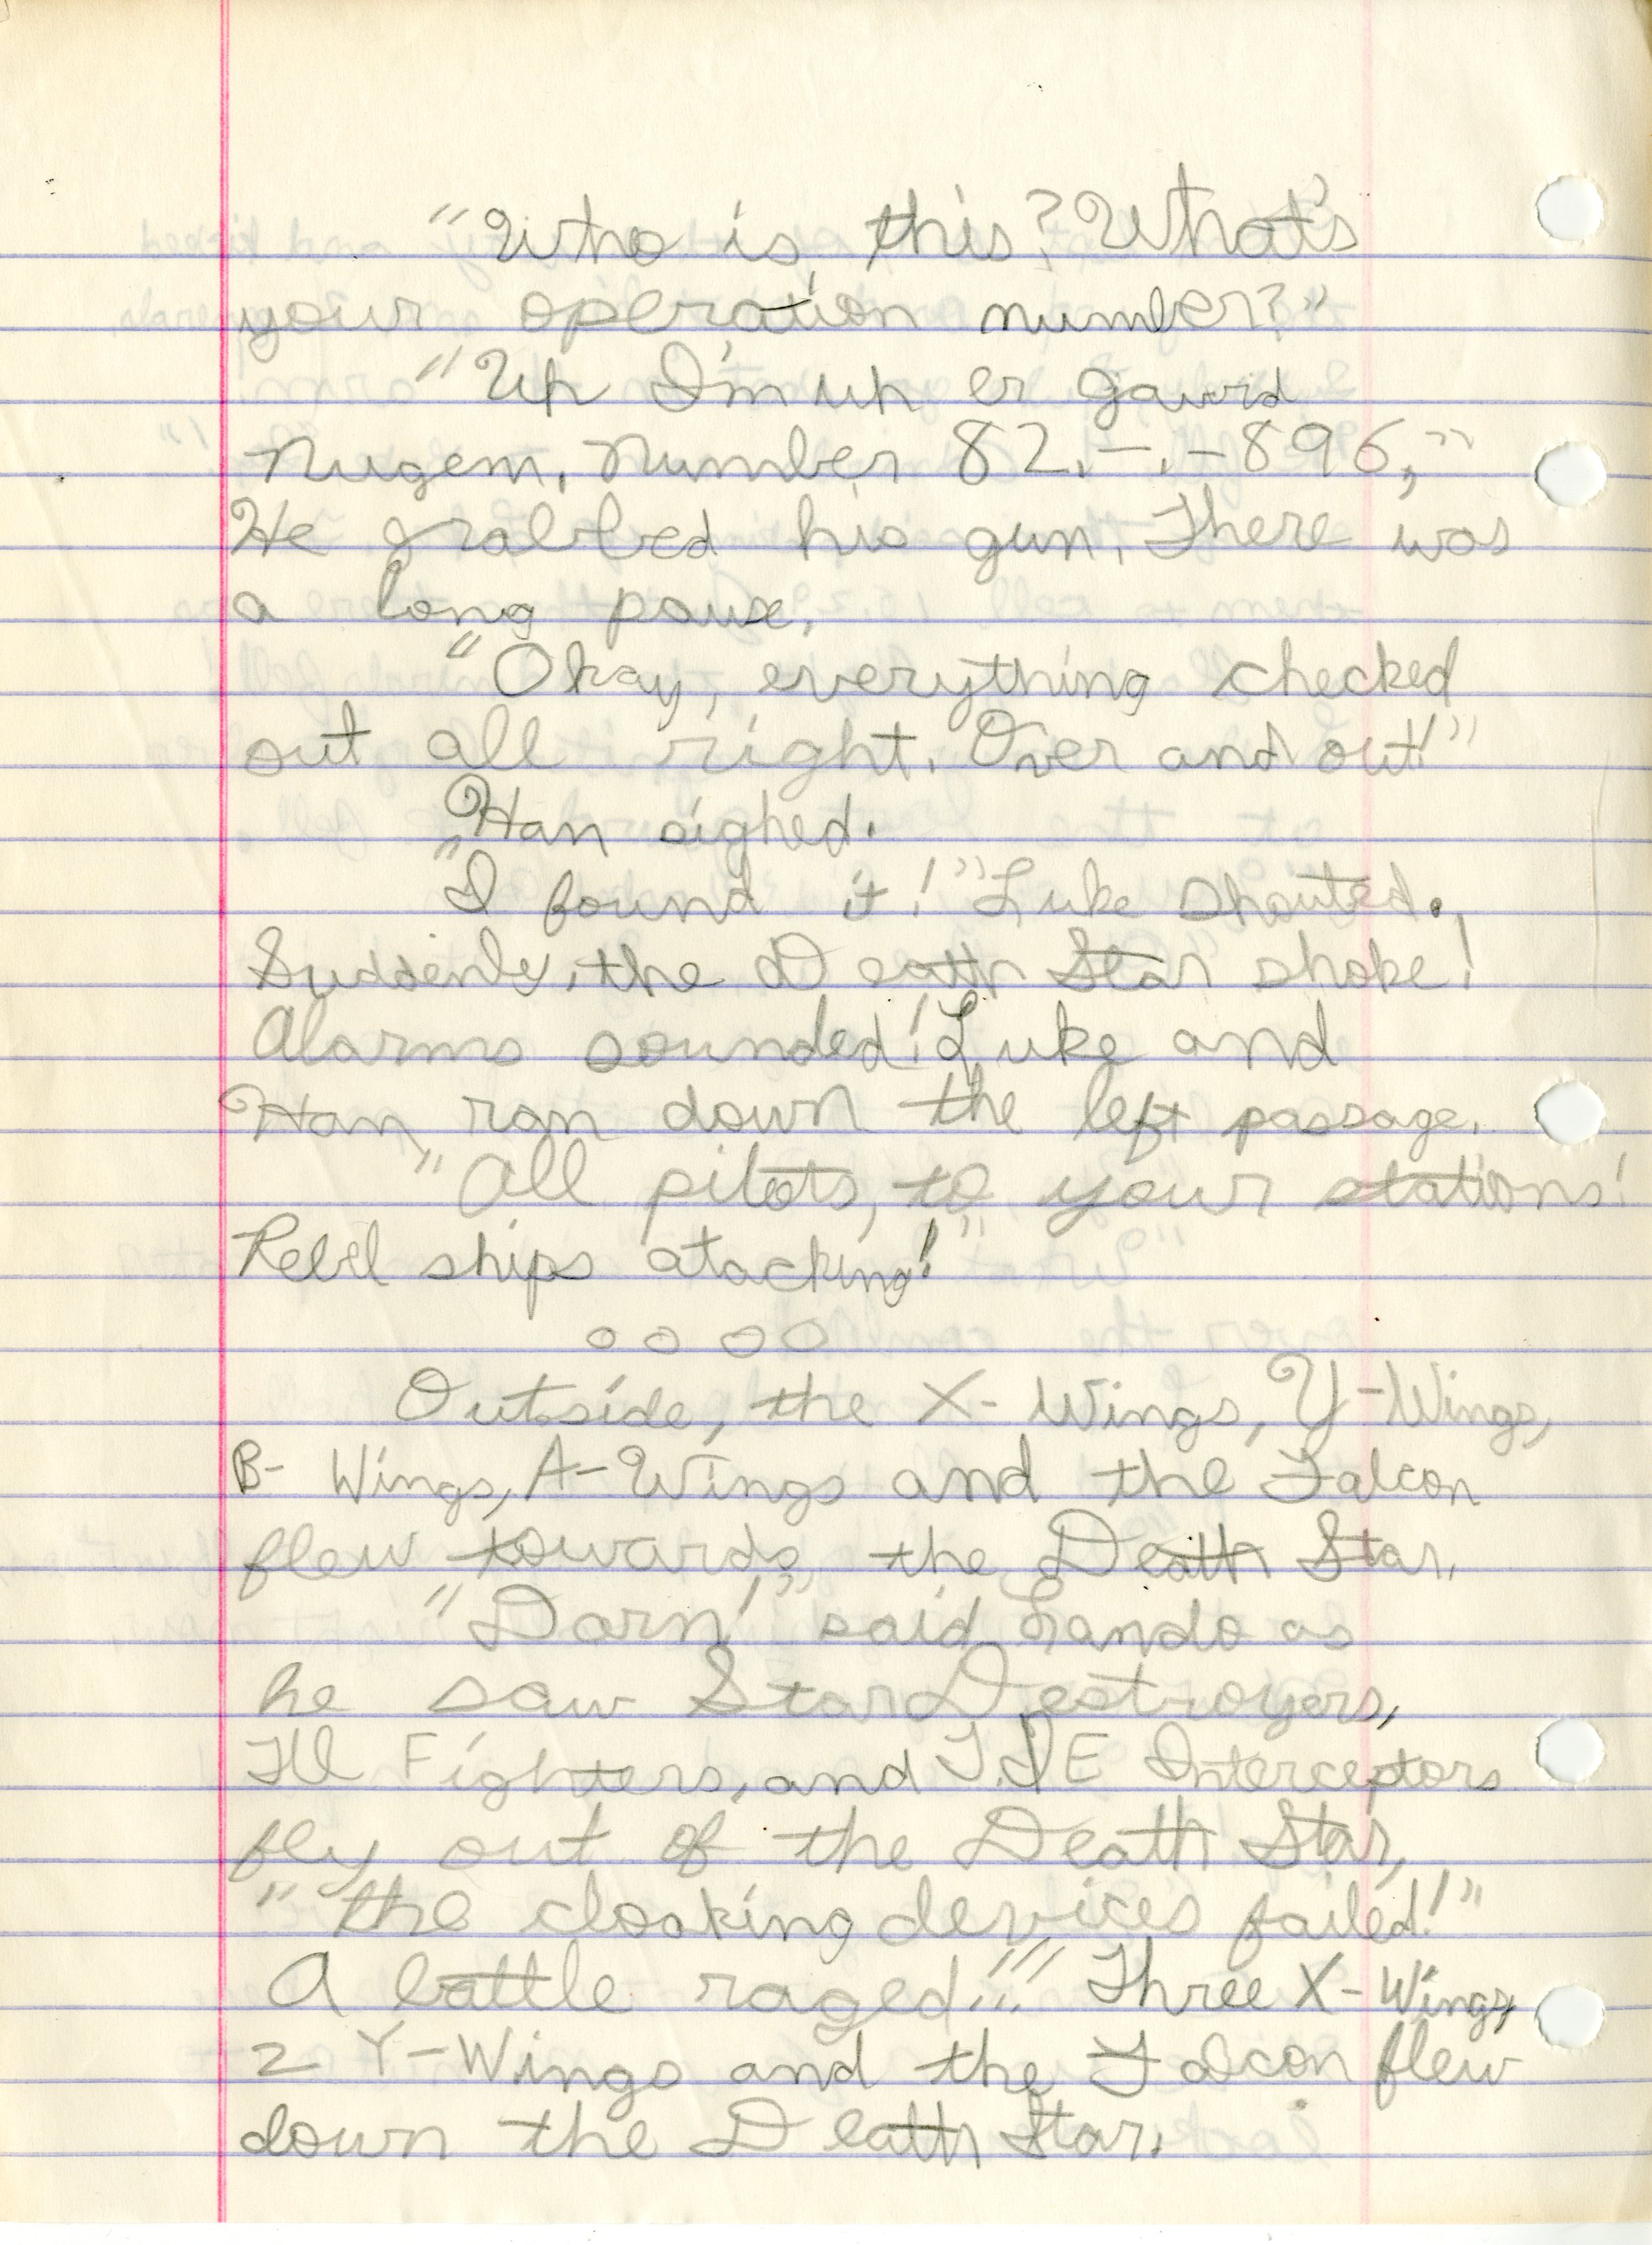 "Who is this? What's
your operation number?"
"Uh I'm uh er gaurd
Nugem. Number 82.-.-896,"
He grabbed his gun. There was
a long pause.
"Okay, everything checked
out all right. Over and out!"
Han sighed.
"I found it!" Luke shouted.
Suddenly, the Death Star shoke!
Alarms sounded! Luke and
Han ran down the left passage.
"All pilots, to your stations!
Rebel ships atacking!"
o o o o
Outside, the X-Wings, Y-Wings,
B-Wings, A-Wings and the Falcon
flew towards the Death Star.
"Darn!" said Lando as
he saw Star Destroyers,
Fighters, and TIE Interceptors
fly out of the Death Star,
"the cloaking devices failed!"
A battle raged!!! Three X-Wings,
2 Y-Wings and the Falcon flew
down the Death Star.